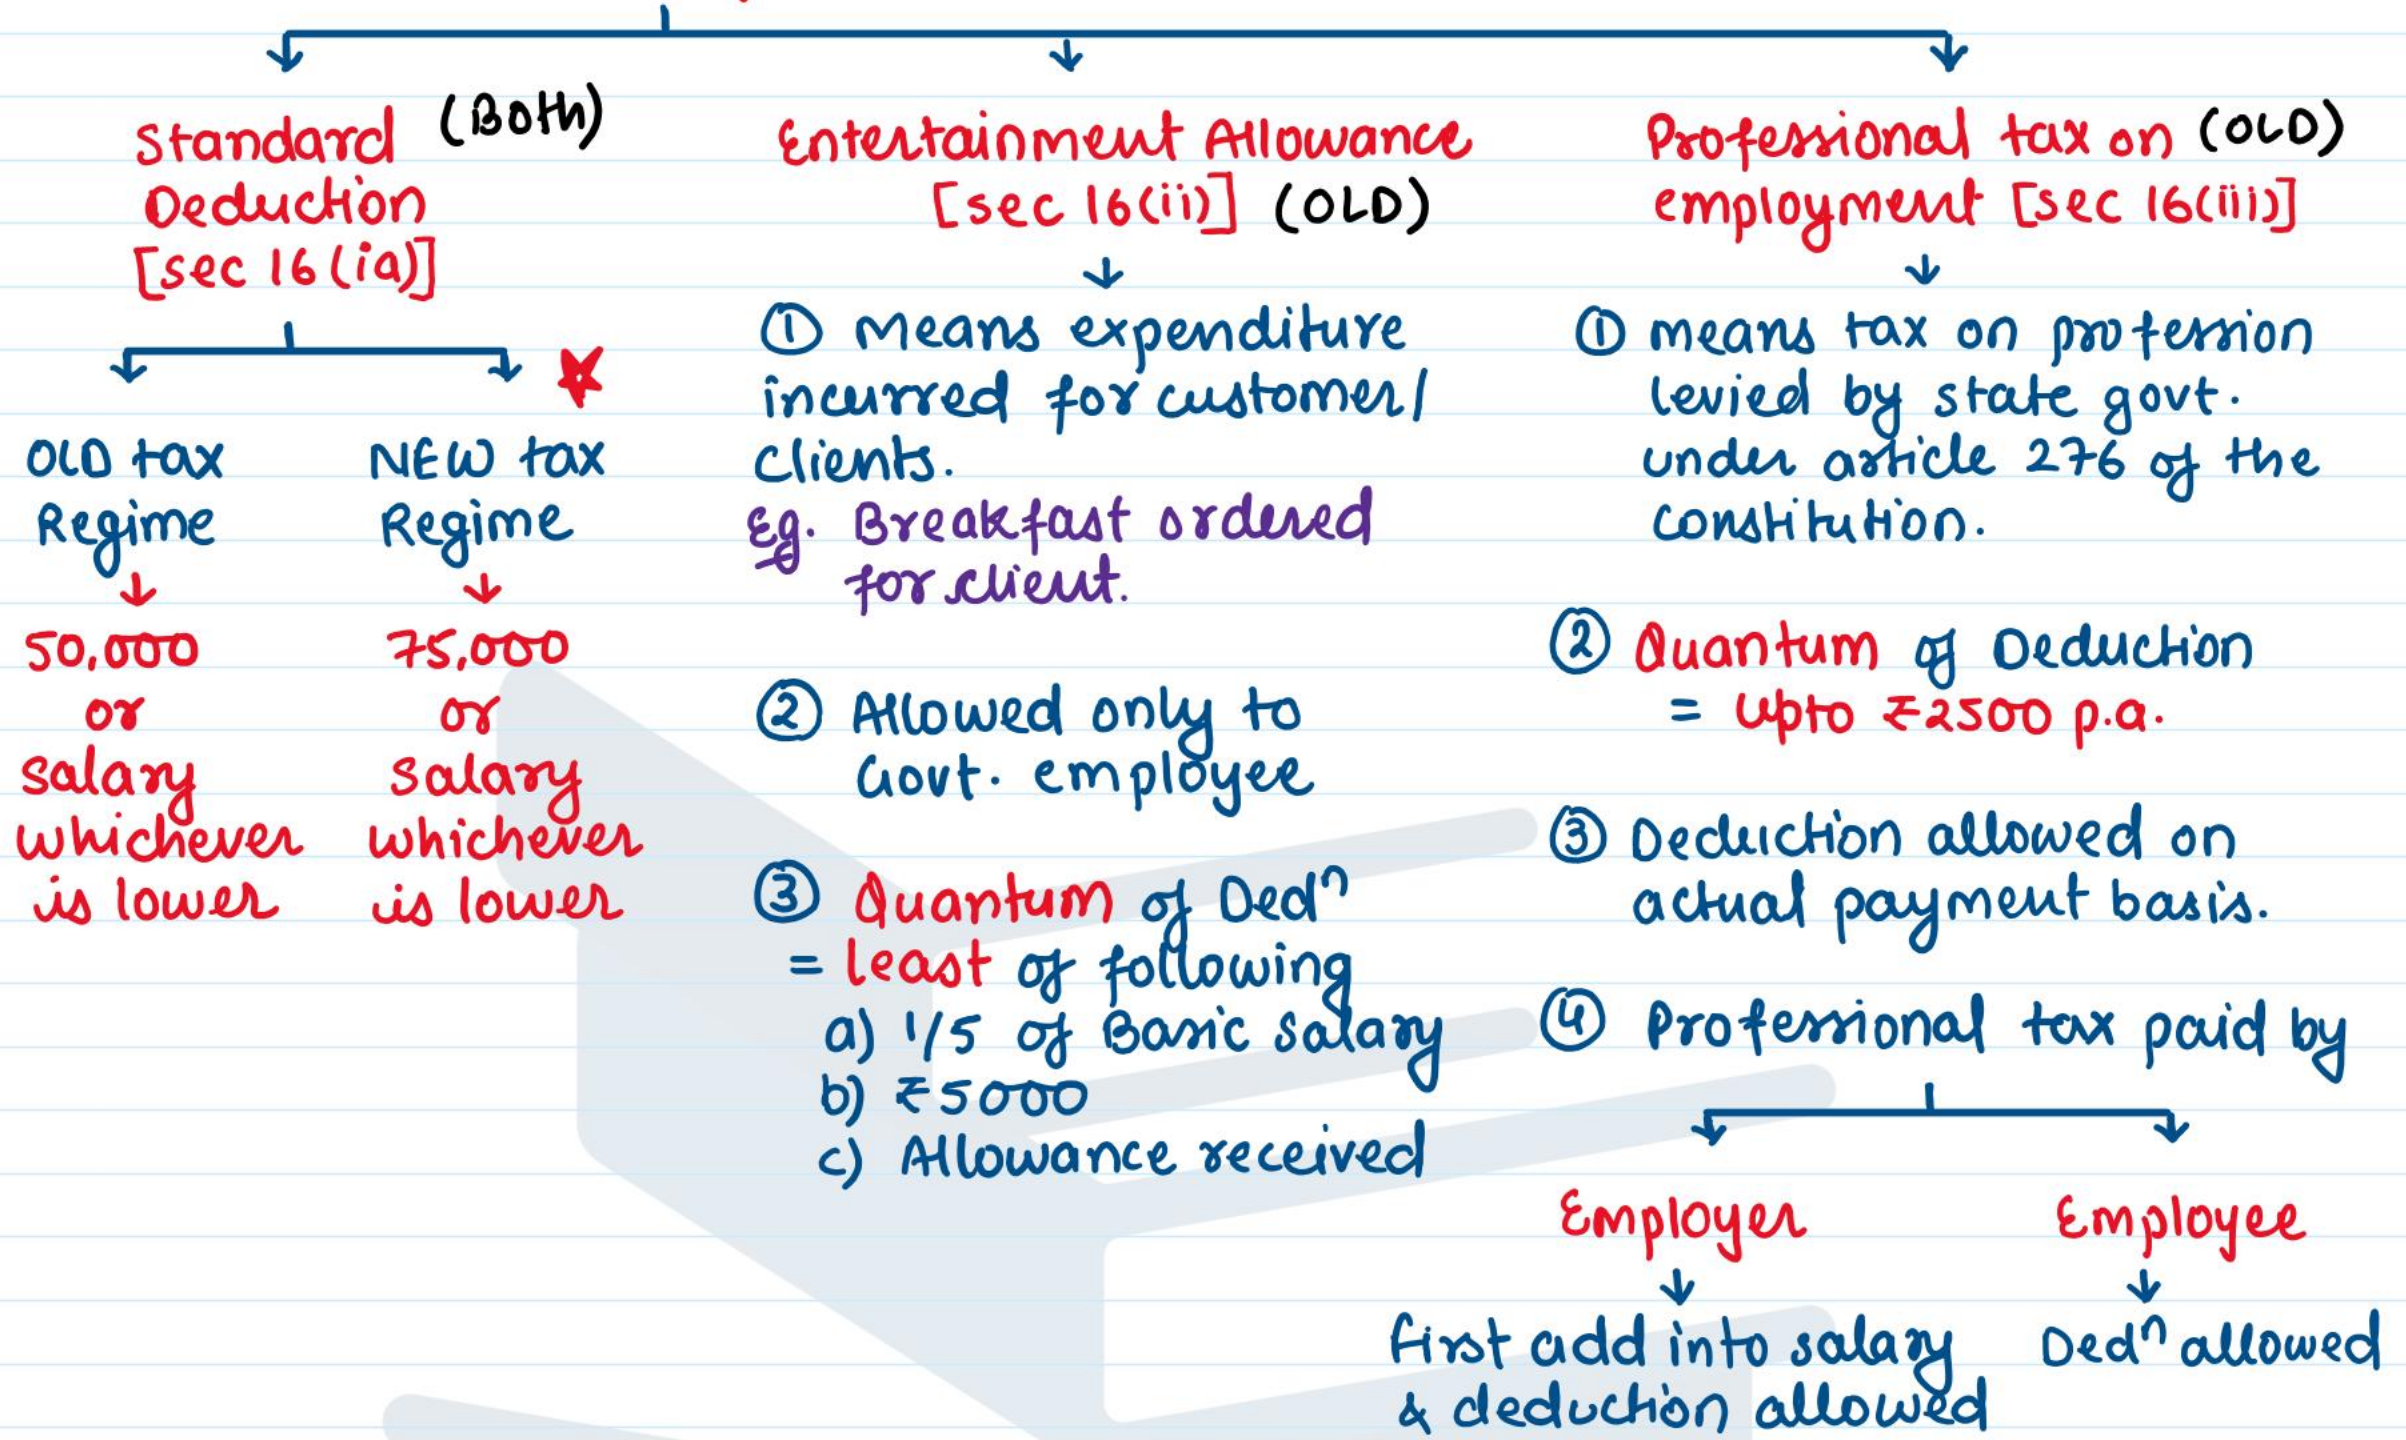 Standard (Both)
Deduction
[sec 16 (ia)]
OLD tax
Regime
50,000
or
salary
whichever
is lower
NEW tax
Regime
75,000
or
salary
whichever
is lower
Entertainment Allowance
[sec 16(ii)] (OLD)
① Means expenditure
incurred for customer/
clients.
Eg. Breakfast ordered
for client.
② Allowed only to
Govt. employee
③ Quantum of Dedⁿ
= least of following
a) 1/5 of Basic salary
b) ₹5000
c) Allowance received
Professional tax on (OLD)
employment [sec 16(iii)]
① means tax on profession
levied by state govt.
under article 276 of the
constitution.
② Quantum of Deduction
= upto ₹2500 p.a.
③ Deduction allowed on
actual payment basis.
④ Professional tax paid by
Employer
First add into salary
& deduction allowed
Employee
Dedⁿ allowed